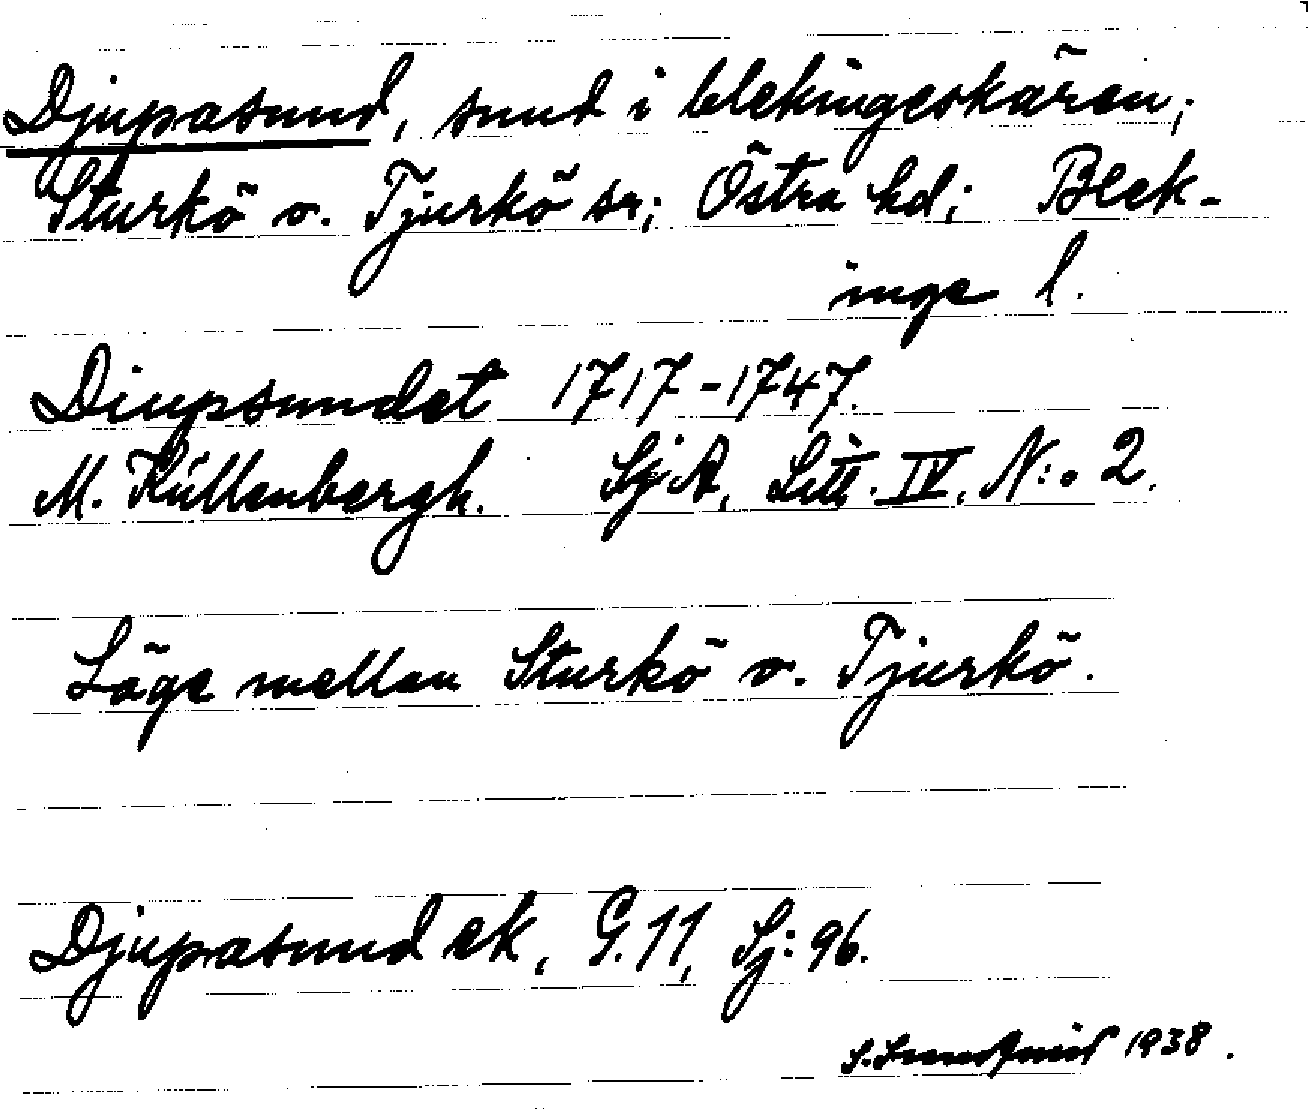 Djupasund, sund i blekingeskären;
Sturkö o. Tjurkö sn; Östra hd; Blek-
inge l.
Diupsundet 1717-1747.
M. Küllenbergh. SjA, Litt. IV, N:o 2.
Läge mellan Sturkö o. Tjurkö.
Djupasund ek, G.11, Sj: 96.
S. 1938.